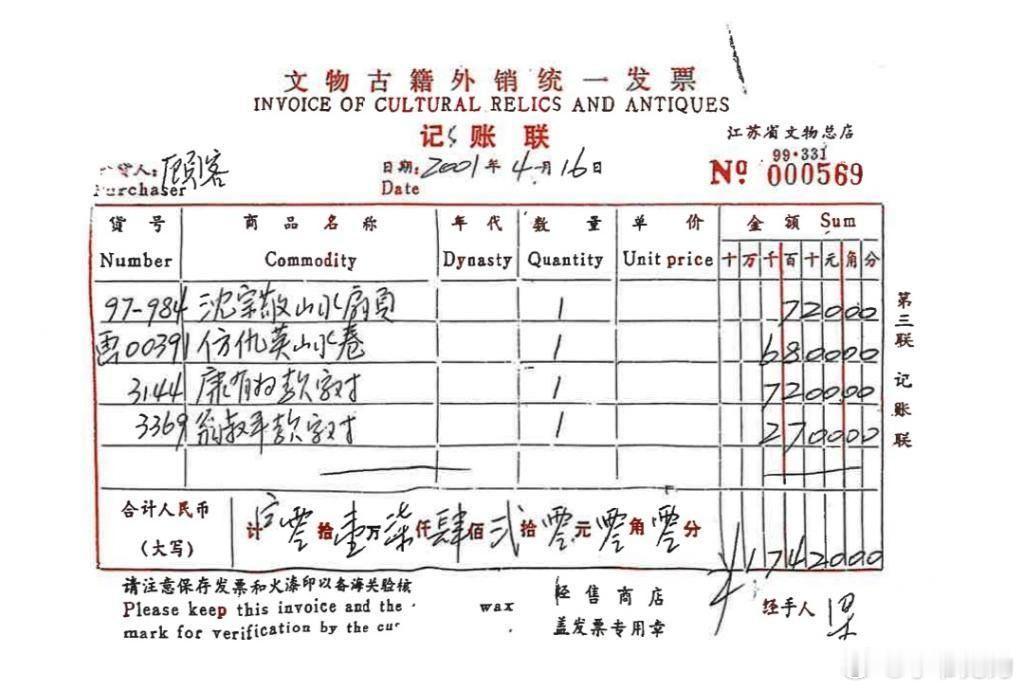 文物古籍外销统一发票
INVOICE OF CULTURAL RELICS AND ANTIQUES
记 账 联
江苏省文物总店
99·331
№ 000569
货人: 顾客
Purchaser
日期: 2001 年 4 月 16 日
Date
货号 商品名称 年代 数量 单价 金额 Sum
Number Commodity Dynasty Quantity Unit price 十 万 千 百 十 元 角 分
97-984 沈宗敬山水扇页 1 72000
00391 仿仇英山水卷 1 680000
3144 康有为款字对 1 720000
3369 翁叔平款字对 1 270000
合计人民币 计 零 拾 壹 万 柒 仟 肆 佰 贰 拾 零 元 零 角 零 分
(大写) ¥1742000
请注意保存发票和火漆印以备海关验核
Please keep this invoice and the wax
mark for verification by the cu
经售商店
盖发票专用章
经手人
第三联 记账联